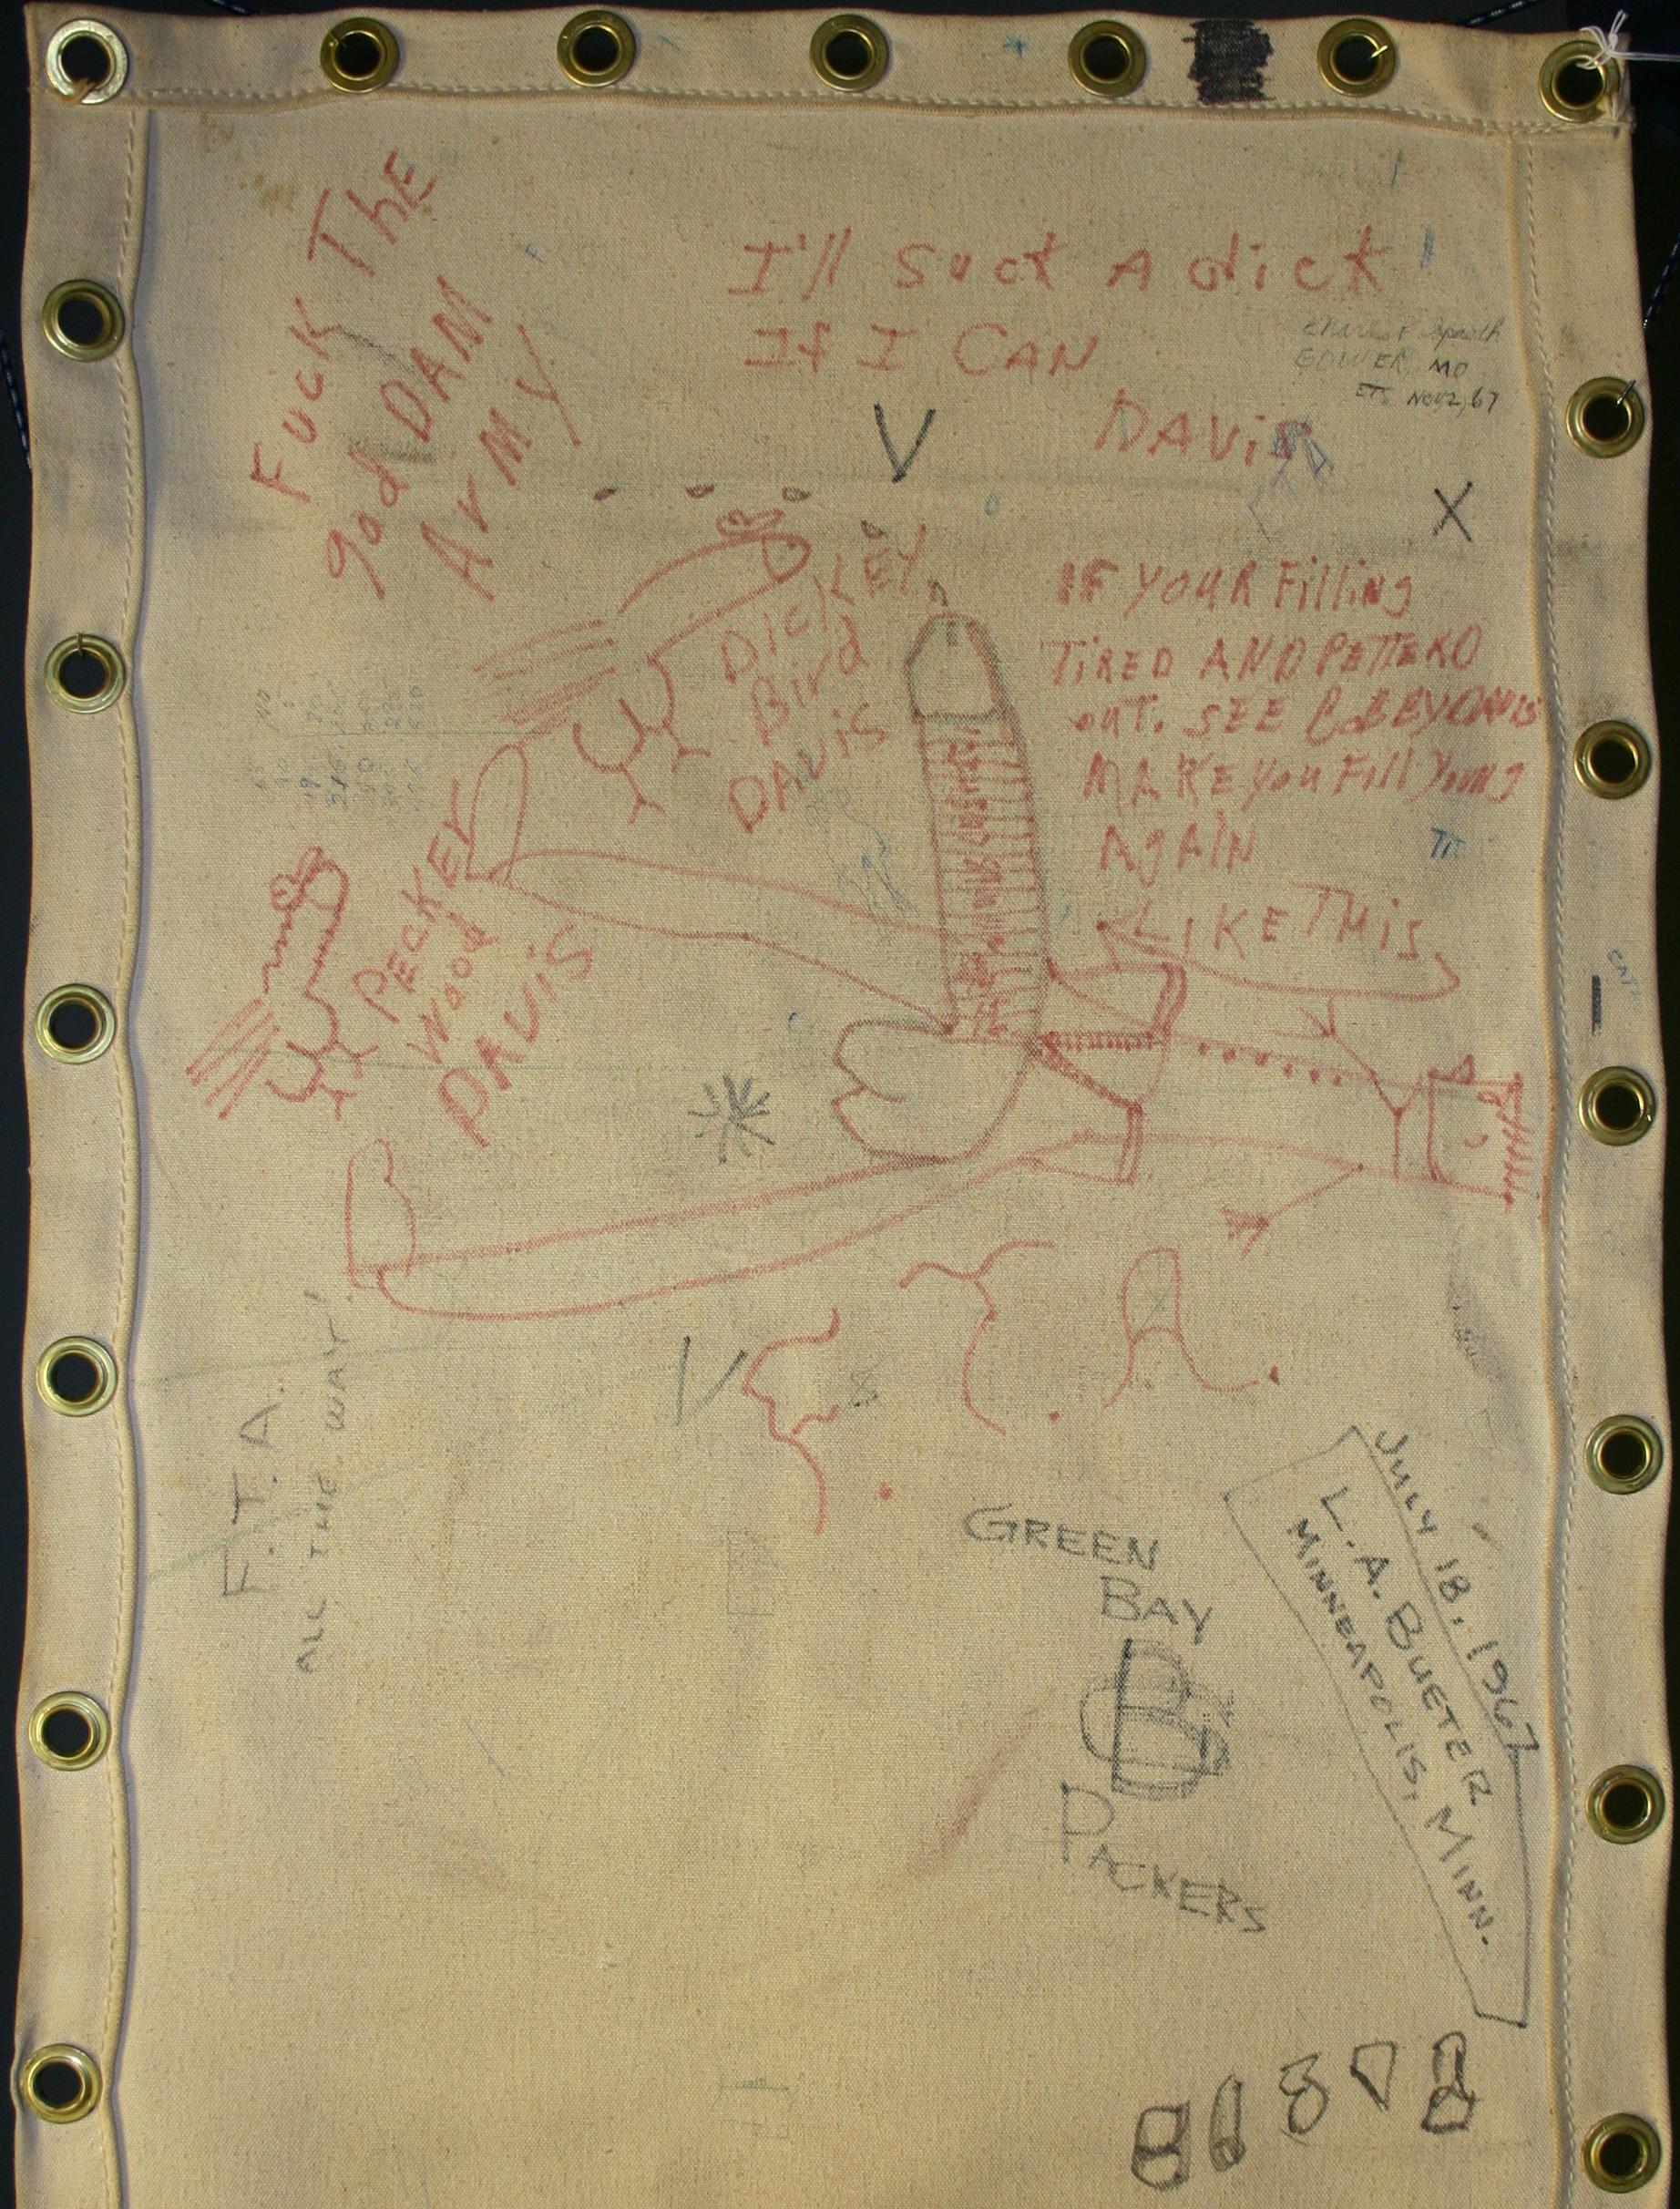 Fuck The
god DAM
ArMy
I'll Suck A dick
If I CAN
DAVis
GOWER, MO
ETS NOV 2, 67
V
X
DICKLEY
Bird
DAViS
IF YOUR Filling
TiRED AND PETTERD
OUT. SEE
MAKE You Fill Young
AgAiN
LIKE THiS
PECKEY
Wood
DAViS
V
F.T.A.
ALL THE WAY!
GREEN
BAY
GB
PACKERS
JULY 18, 1967
L.A. BUETER
MINNEAPOLIS, MINN.